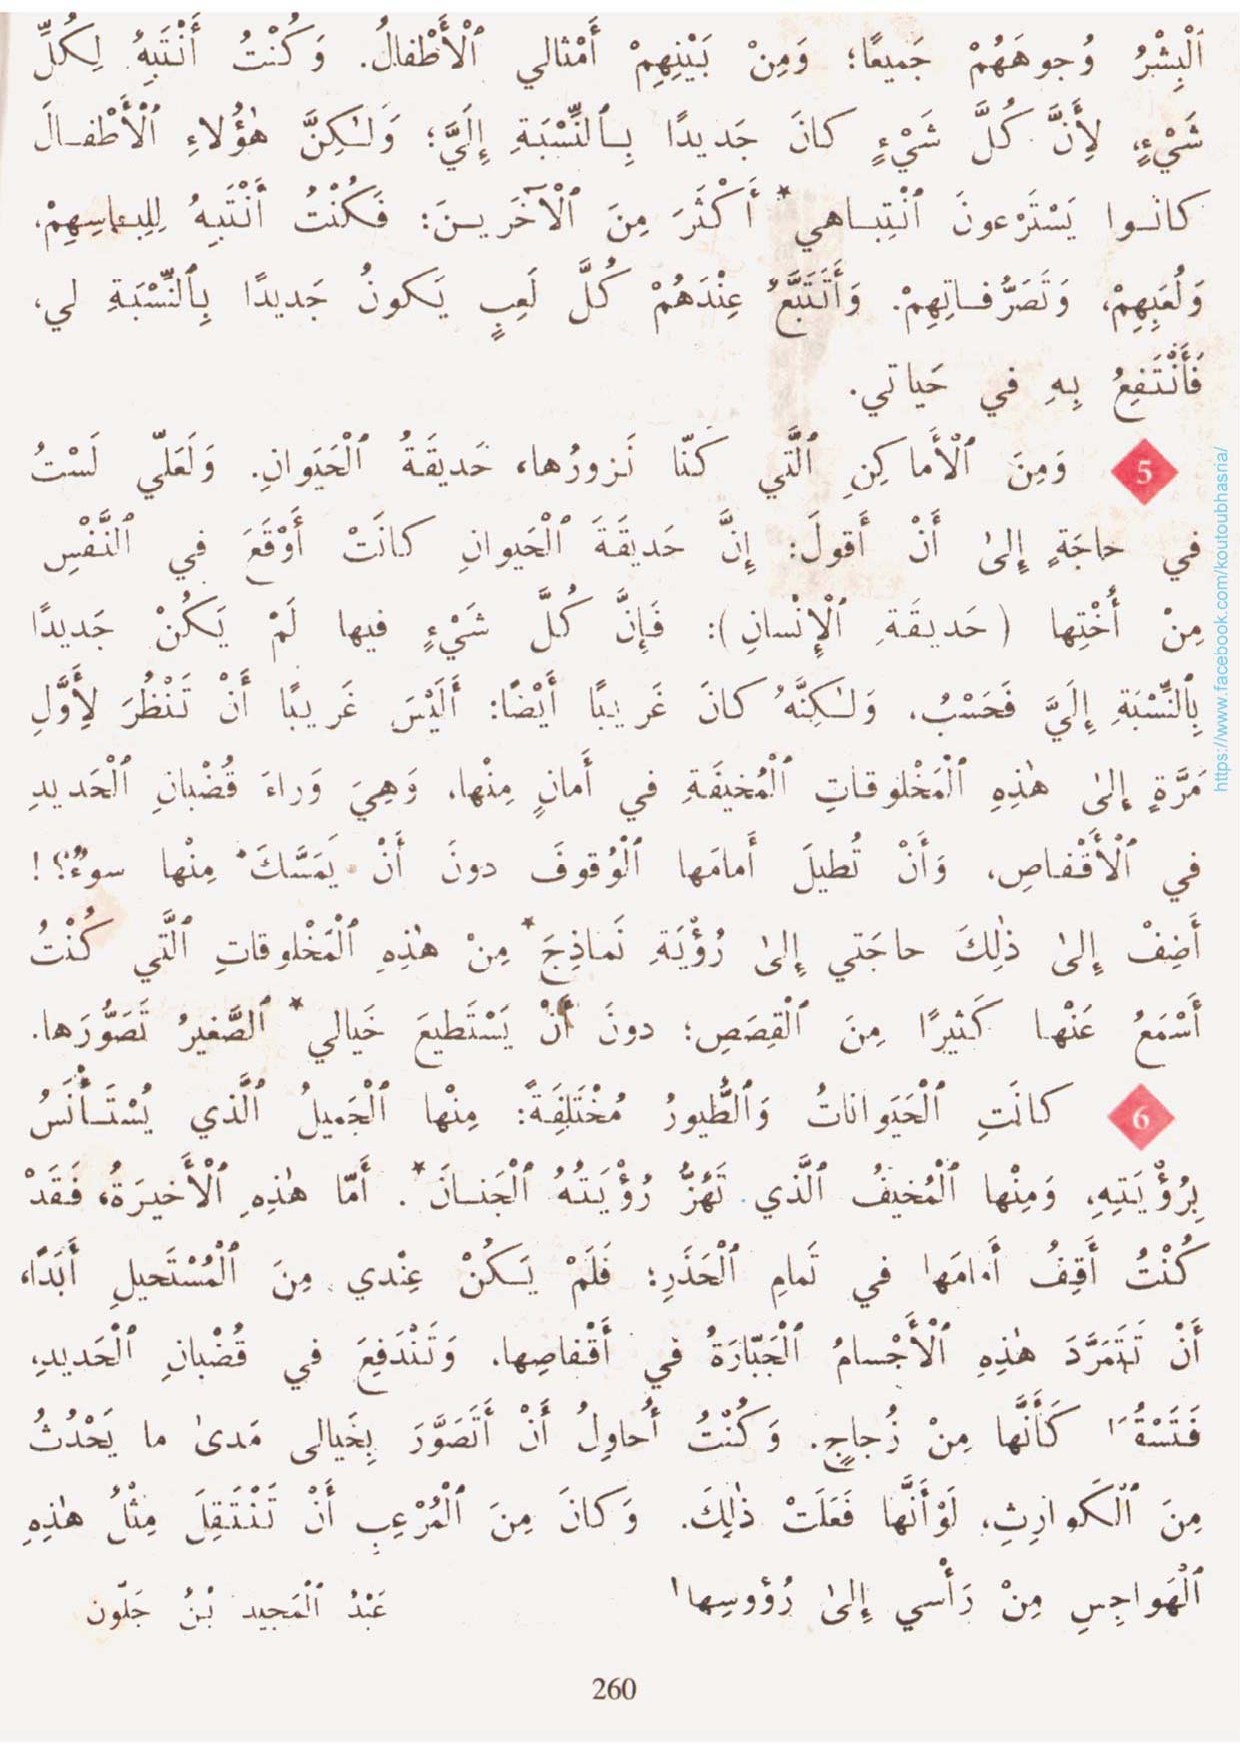 اَلْبِشْرُ وُجوهَهُمْ جَميعًا؛ وَمِنْ بَيْنِهِمْ أَمْثالي ٱلْأَطْفالُ. وَكُنْتُ أَنْتَبِهُ لِكُلِّ
شَيْءٍ، لِأَنَّ كُلَّ شَيْءٍ كانَ جَديدًا بِٱلنِّسْبَةِ إِلَيَّ؛ وَلٰكِنَّ هٰؤُلاءِ ٱلْأَطْفالَ
كانوا يَسْتَرْعونَ ٱنْتِباهي* أَكْثَرَ مِنَ ٱلْآخَرينَ: فَكُنْتُ أَنْتَبِهُ لِلِباسِهِمْ،
وَلُعَبِهِمْ، وَتَصَرُّفاتِهِمْ. وَأَتَتَبَّعُ عِنْدَهُمْ كُلَّ لَعِبٍ يَكونُ جَديدًا بِٱلنِّسْبَةِ لي،
فَأَنْتَفِعُ بِهِ في حَياتي.
5 وَمِنَ ٱلْأَماكِنِ ٱلَّتي كُنّا نَزورُها، حَديقَةُ ٱلْحَيَوانِ. وَلَعَلّي لَسْتُ
في حاجَةٍ إِلىٰ أَنْ أَقولَ: إِنَّ حَديقَةَ ٱلْحَيَوانِ كانَتْ أَوْقَعَ في ٱلنَّفْسِ
مِنْ أُخْتِها (حَديقَةِ ٱلْإِنْسانِ): فَإِنَّ كُلَّ شَيْءٍ فيها لَمْ يَكُنْ جَديدًا
بِٱلنِّسْبَةِ إِلَيَّ فَحَسْبُ، وَلٰكِنَّهُ كانَ غَريبًا أَيْضًا: أَلَيْسَ غَريبًا أَنْ تَنْظُرَ لِأَوَّلِ
مَرَّةٍ إِلىٰ هٰذِهِ ٱلْمَخْلوقاتِ ٱلْمُخيفَةِ في أَمانٍ مِنْها، وَهِيَ وَراءَ قُضْبانِ ٱلْحَديدِ
في ٱلْأَقْفاصِ، وَأَنْ تُطيلَ أَمامَها ٱلْوُقوفَ دونَ أَنْ يَمَسَّكَ مِنْها سوءٌ؟!
أَضِفْ إِلىٰ ذٰلِكَ حاجَتي إِلىٰ رُؤْيَةِ نَماذِجَ* مِنْ هٰذِهِ ٱلْمَخْلوقاتِ ٱلَّتي كُنْتُ
أَسْمَعُ عَنْها كَثيرًا مِنَ ٱلْقِصَصِ؛ دونَ أَنْ يَسْتَطيعَ خَيالي* ٱلصَّغيرُ تَصَوُّرَها.
6 كانَتِ ٱلْحَيَواناتُ وَٱلطُّيورُ مُخْتَلِفَةً: مِنْها ٱلْجَميلُ ٱلَّذي يُسْتَأْنَسُ
بِرُؤْيَتِهِ، وَمِنْها ٱلْمُخيفُ ٱلَّذي تَهُزُّ رُؤْيَتُهُ ٱلْجَنانَ*. أَمّا هٰذِهِ ٱلْأَخيرَةُ، فَقَدْ
كُنْتُ أَقِفُ أَمامَها في تَمامِ ٱلْحَذَرِ؛ فَلَمْ يَكُنْ عِنْدي مِنَ ٱلْمُسْتَحيلِ أَبَدًا،
أَنْ تَتَمَرَّدَ هٰذِهِ ٱلْأَجْسامُ ٱلْجَبّارَةُ في أَقْفاصِها، وَتَنْدَفِعَ في قُضْبانِ ٱلْحَديدِ،
كَأَنَّها مِنْ زُجاجٍ. وَكُنْتُ أُحاوِلُ أَنْ أَتَصَوَّرَ بِخَيالي مَدىٰ ما يَحْدُثُ
مِنَ ٱلْكَوارِثِ، لَوْ أَنَّها فَعَلَتْ ذٰلِكَ. وَكانَ مِنَ ٱلْمُرْعِبِ أَنْ تَنْتَقِلَ مِثْلُ هٰذِهِ
ٱلْهَواجِسِ مِنْ رَأْسي إِلىٰ رُؤوسِها!
عَبْدُ ٱلْمَجيد بْنُ جَلّون
260
https://www.facebook.com/koutoubhasria/